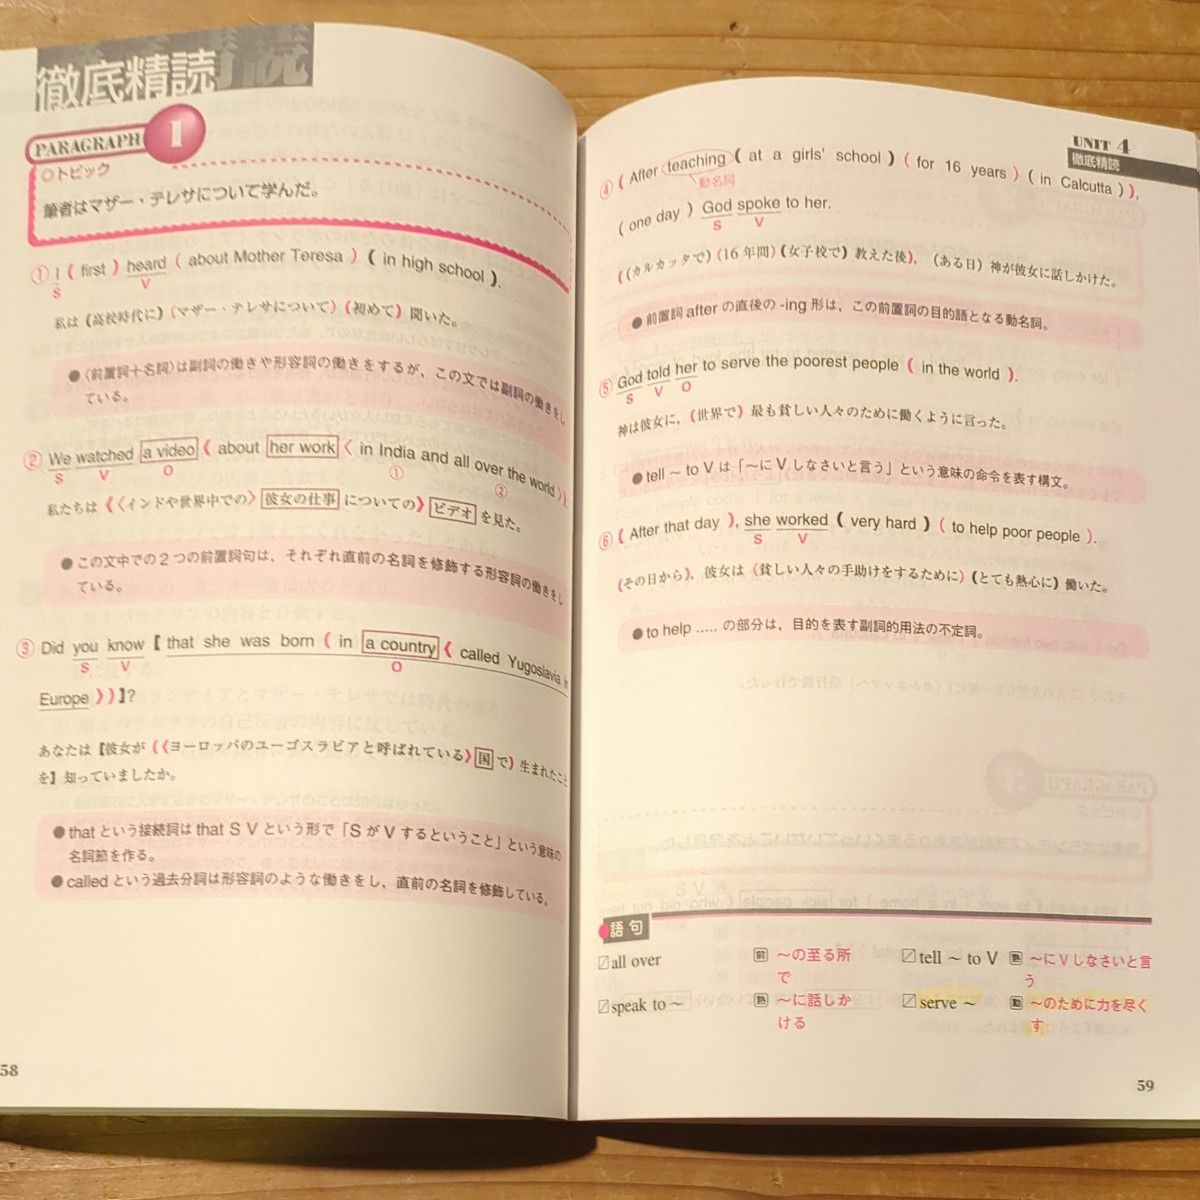 徹底精読
PARAGRAPH 1
○トピック
筆者はマザー・テレサについて学んだ。
① I ( first ) heard ( about Mother Teresa ) ( in high school ).
S V
私は(高校時代に)(マザー・テレサについて)(初めて)聞いた。
●〈前置詞+名詞〉は副詞の働きや形容詞の働きをするが、この文では副詞の働きをし
ている。
② We watched a video 《 about her work 〈 in India and all over the world 〉》.
S V O ① ②
私たちは《〈インドや世界中での〉彼女の仕事についての》ビデオを見た。
●この文中での2つの前置詞句は、それぞれ直前の名詞を修飾する形容詞の働きをし
ている。
③ Did you know 【 that she was born ( in a country 《 called Yugoslavia in
S V O
Europe 》) 】?
あなたは【彼女が(《ヨーロッパのユーゴスラビアと呼ばれている》国で)生まれたこと
を】知っていましたか。
●thatという接続詞はthat S Vという形で「SがVするということ」という意味の
名詞節を作る。
●calledという過去分詞は形容詞のような働きをし、直前の名詞を修飾している。
58
UNIT 4
徹底精読
④ ( After teaching ( at a girls' school ) ( for 16 years ) ( in Calcutta ) ),
動名詞
( one day ) God spoke to her.
S V
((カルカッタで)(16年間)(女子校で)教えた後),(ある日)神が彼女に話しかけた。
●前置詞afterの直後の-ing形は、この前置詞の目的語となる動名詞。
⑤ God told her to serve the poorest people ( in the world ).
S V O
神は彼女に,(世界で)最も貧しい人々のために働くように言った。
●tell ~ to Vは「~にVしなさいと言う」という意味の命令を表す構文。
⑥ ( After that day ), she worked ( very hard ) ( to help poor people ).
S V
(その日から),彼女は(貧しい人々の手助けをするために)(とても熱心に)働いた。
●to help .....の部分は、目的を表す副詞的用法の不定詞。
語句
all over 前 ~の至る所
で
tell ~ to V 熟 ~にVしなさいと言
う
speak to ~ 熟 ~に話しか
ける
serve ~ 動 ~のために力を尽く
す
59